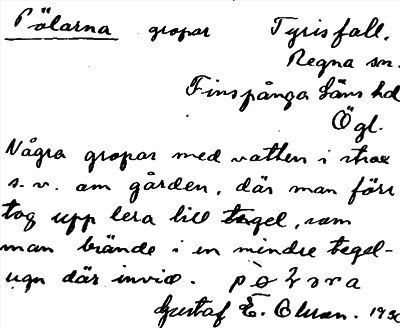 Pölarna gropar Tyrisfall.
Regna sn.
Finspånga läns hd
Ögl.
Några gropar med vatten i strax
s.v. om gården, där man förr
tog upp lera till tegel, som
man brände i en mindre tegel-
ugn där invid.
Gustaf E. Olsson. 1930